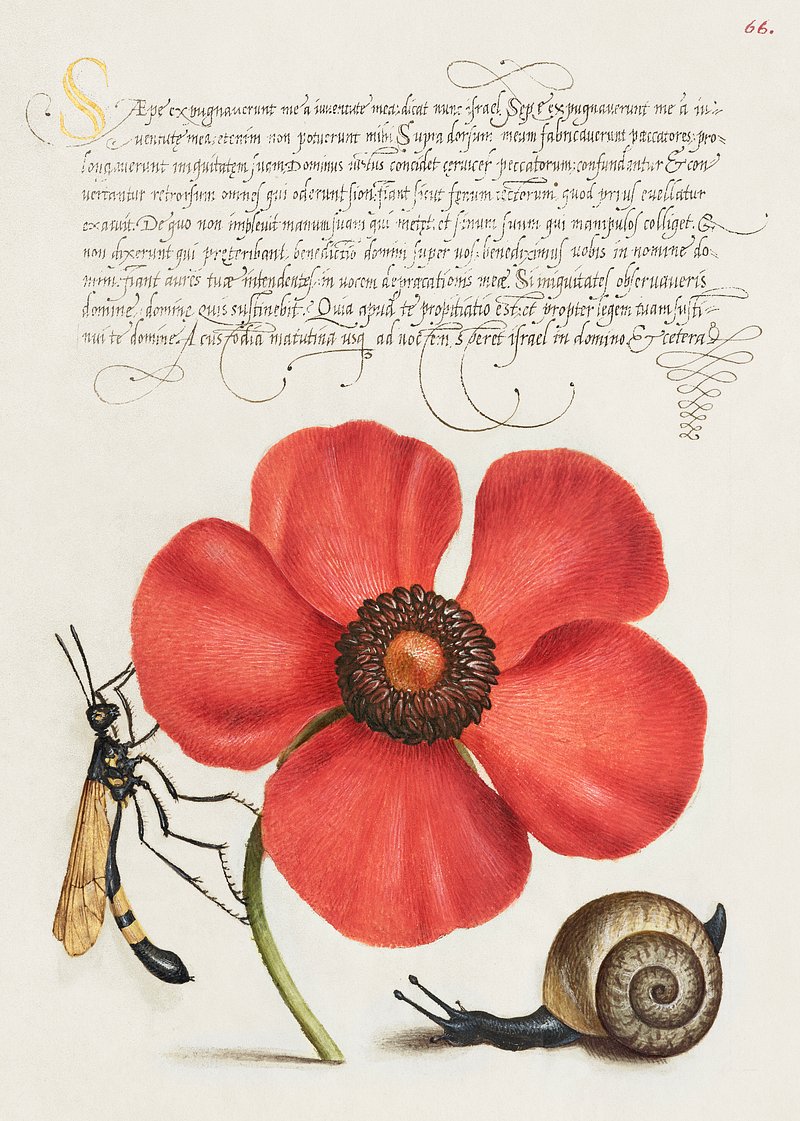 66.
SÆpe expugnauerunt me a iuuentute mea: dicat nunc israel. Sepe expugnauerunt me a iu=
uentute mea: etenim non potuerunt mihi. Supra dorsum meum fabricauerunt peccatores: pro=
longauerunt iniquitatem suam. Dominus iustus concidet ceruices peccatorum: confundantur & con
uertantur retrorsum omnes qui oderunt sion: fiant sicut fenum tectorum, quod prius euellatur
exaruit. De quo non impleuit manum suam qui metet: et sinum suum qui manipulos colliget. Et
non dixerunt qui preteribant, benedictio domini super uos: benediximus uobis in nomine do=
mini. fiant aures tuæ intendentes: in uocem depræcationis meæ. Si iniquitates obseruaueris
domine: domine quis sustinebit? Quia apud te propitiatio est: et propter legem tuam susti=
nui te domine. A custodia matutina usq ad noctem, speret israel in domino. Et cetera